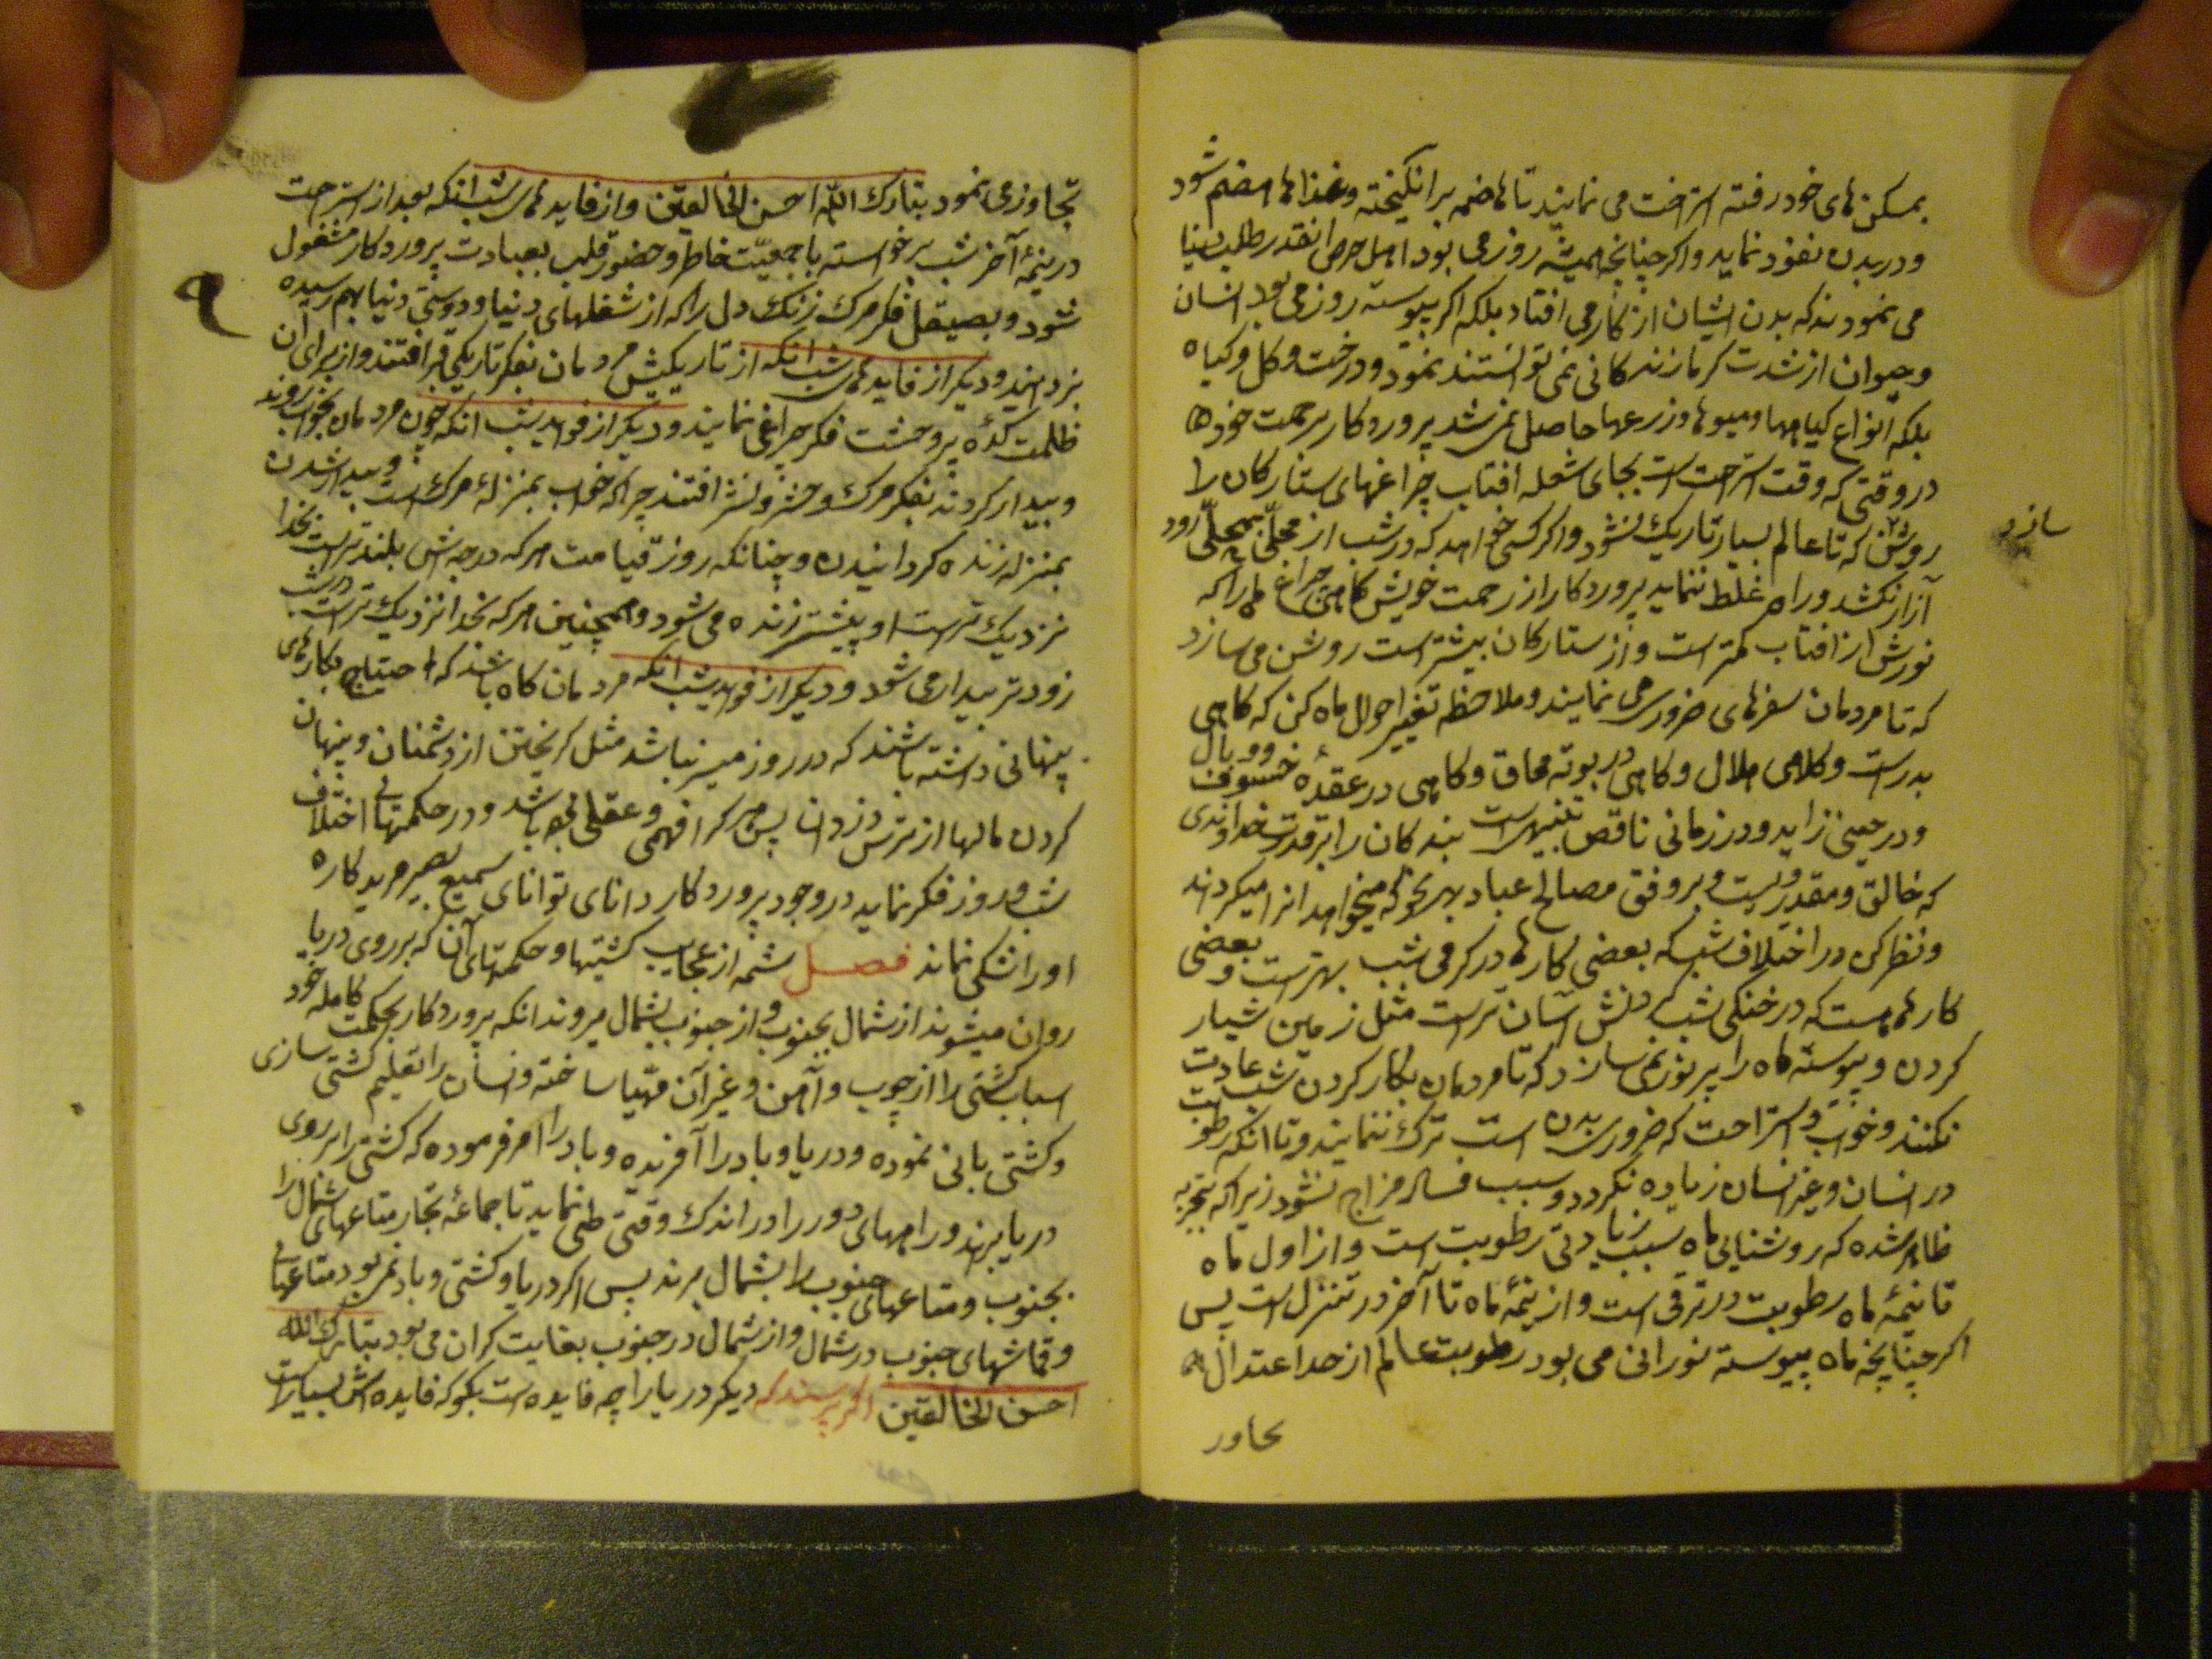 بمسکن‌های خود رفته استراحت می نمایند تا هاضمه برانگیخته و غذاها هضم شود
و در بدن نفوذ نماید و اکر چنانچه همیشه روز می بود اهل حرص انقدر طلب دنیا
می نمودند که بدن ایشان از کار می افتاد بلکه اکر پیوسته روز می بود انسان
و حیوان از شدت کرما زندکانی نمی توانستند نمود و درخت و کل و کیاه
بلکه انواع کیاهها و میوها و زرعها حاصل نمی شد پروردکار برحمت خود ها
در وقتی که وقت استراحت است بجای شعله افتاب چراغهای ستارکان را
سازد
روشن که تا عالم بسیار تاریک نشود و اکر کسی خواهد که در شب از محلّی بمحلّی رود
آزار نکشد و راه غلط ننماید پروردکار از رحمت خویش کاهی چراغ ماه را که
نورش از افتاب کمتر است و از ستارکان بیشتر است روشن می سازد
که تا مردمان سفرهای ضروری می نمایند و ملاحظه تغییر احوال ماه کن که کاهی
بدر است و کاهی هلال و کاهی در بوته محاق و کاهی در عقدهٔ خسوف و وبال
و در حینی زاید و در زمانی ناقص تنبیه است بندکان را بر قدرت خداوندی
که خالق و مقدر ویست و بر وفق مصالح عباد بهر نحو که میخواهد انرا میکرداند
و نظر کن در اختلاف شب که بعضی کارها در کرمی شب بهتر است و بعضی
کارها هست که در خنکی شب کردنش آسان تر است مثل زمین شیار
کردن و پیوسته ماه را پر نور نمی سازد که تا مردمان بکار کردن شب عادت
نکنند و خواب و استراحت که ضروری بدن است ترک ننمایند و تا انکه رطوبت
در انسان و غیر انسان زیاده نکردد و سبب فساد مزاج نشود زیرا که بتجربه
ظاهر شده که روشنایی ماه سبب زیادتی رطوبت است و از اول ماه
تا نیمهٔ ماه رطوبت در ترقی است و از نیمهٔ ماه تا آخر در تنزل است پس
اکر چنانچه ماه پیوسته نورانی می بود رطوبت عالم از حد اعتدال
تجاوز
تجاوز می نمود تبارک اللّه احسن الخالقین و از فاید‌های شب انکه بعد از استراحت
در نیمهٔ آخر شب برخواسته با جمعیّت خاطر و حضور قلب بعبادت پروردکار مشغول
شود و بصیقل فکر مرک زنک دل را که از شغلهای دنیا و دوستی دنیا بهم رسیده
بزداید و دیکر از فاید‌های شب انکه از تاریکیش مردمان بفکر تاریکی قبر افتند و از برای ان
ظلمت کدهٔ پر وحشت فکر چراغی نمایند و دیکر از فواید شب انکه چون مردمان بخواب روند
و بیدار کردند بفکر مرک و حشر و نشر افتند چرا که خواب بمنزلهٔ مرک است و بیدار شدن
بمنزله زنده کردانیدن و چنانکه روز قیامت هر که درجه اش بلندتر است بخدا
نزدیک تر است او پیشتر زنده می شود و همچنین هر که بخدا نزدیک تر است در شب
زودتر بیدار می شود و دیکر از فواید شب انکه مردمان کاه باشند که احتیاج بکارهای
پنهانی داشته باشند که در روز میسر نباشد مثل کریختن از دشمنان و پنهان
کردن مالها از ترس دزدان پس هر کرا فهمی و عقلی بوده باشد و در حکمتهای اختلاف
شب و روز فکر نماید در وجود پروردکار دانای توانای سمیع بصیر مرید کاره
او را شکی نماند فصل شمّه از عجایب کشتیها و حکمتهای آن که بر روی دریا
روان میشوند از شمال بجنوب و از جنوب بشمال میروند انکه پروردکار بحکمت کامله خود
اسباب کشتی را از چوب و آهن و غیر آن مهیا ساخته و انسان را تعلیم کشتی سازی
و کشتی بانی نموده و دریا و باد را آفریده و باد را امر فرموده که کشتی را بر روی
دریا برند و راههای دور را در اندک وقتی طی نماید تا جماعهٔ تجار متاعهای شمال را
بجنوب و متاعهای جنوب را بشمال برند پس اکر دریا و کشتی و باد نمی بود متاعهای
و قماشهای جنوب در شمال و از شمال در جنوب بغایت کران می بود تبارک اللّه
احسن الخالقین اکر پرسند که دیکر دریا را چه فایده است بکو که فایده اش بسیار است
۹